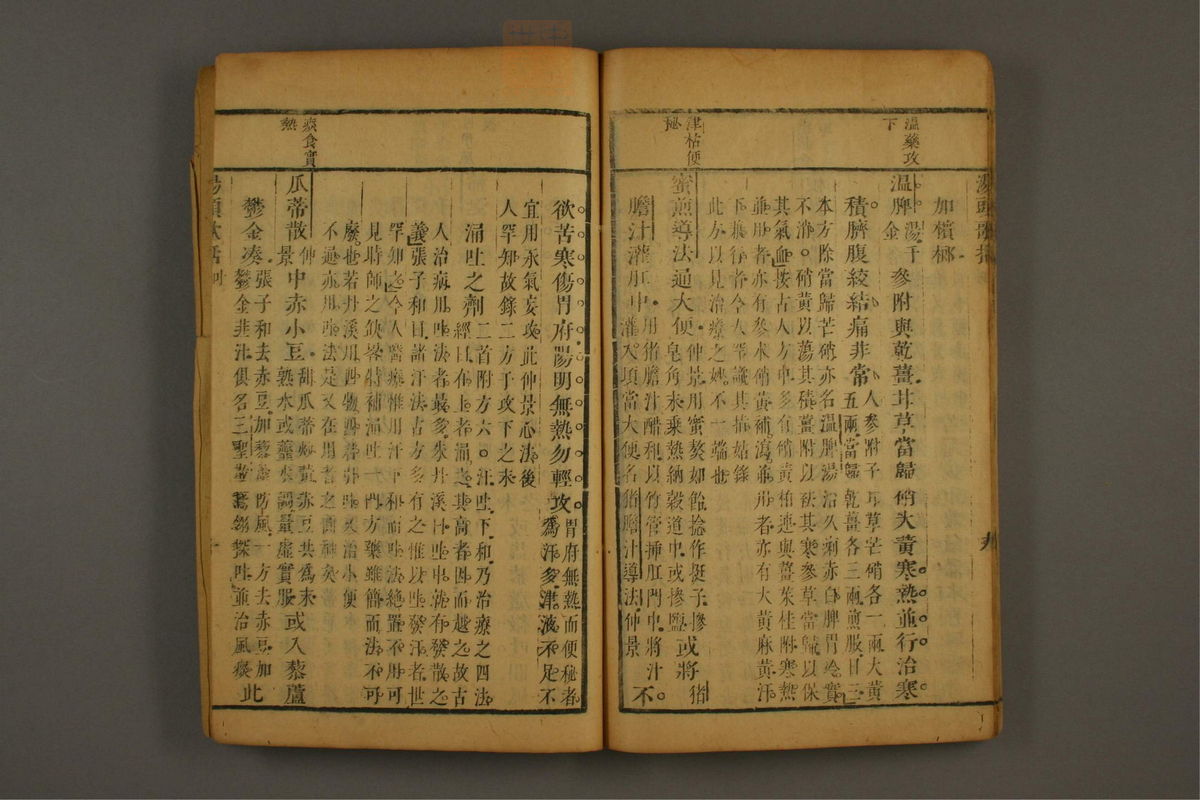 湯頭歌括
九
加檳榔
溫藥攻下
溫脾湯千金參附與乾薑甘草當歸硝大黃寒熱並行治寒
積臍腹絞結痛非常人參附子甘草芒硝各一兩大黃五兩當歸乾薑各三兩煎服日三
本方除當歸芒硝亦名溫脾湯治久痢赤白脾胃冷實
不消。硝黃以蕩其積薑附以祛其寒參草當歸以保
其氣血按古人方中多有硝黃柏連與薑茱桂附寒熱
並用者亦有參朮硝黃補瀉並用者亦有大黃麻黃汗
下兼行者今人罕識其指姑錄
此方以見治療之妙不一端也
津枯便秘
蜜煎導法通大便仲景用蜜熬如飴捻作挺子摻皂角末乘熱納穀道中或摻鹽或將猪
膽汁灌肛中用猪膽汁醋和以竹管插肛門中將汁灌入頃當大便名猪膽汁導法仲景不
欲苦寒傷胃府陽明無熱勿輕攻胃府無熱而便秘者爲汗多津液不足不
宜用承氣妄攻此仲景心法後
人罕知故錄二方于攻下之末
涌吐之劑二首附方六。汗吐下和乃治療之四法經曰在上者涌之其高者因而越之故古
人治病用吐法者最多朱丹溪曰吐中就有發散之
義張子和曰諸汗法古方多有之惟以吐發汗者世
罕知之今人醫療惟用汗下和而吐法絕置不用可
見時師之缺畧特補涌吐一門方藥雖簡而法不可
廢也若丹溪用四物四君引吐又治小便
不通亦用吐法是又在用者之圓神矣
痰食實熱
瓜蒂散仲景中赤小豆甜瓜蒂炒黃赤豆共爲末熟水或虀水調量虛實服或入藜蘆
鬱金湊張子和去赤豆加藜蘆防風一方去赤豆加鬱金韭汁俱名三聖散鵞翎探吐並治風痰此
湯頭歌括